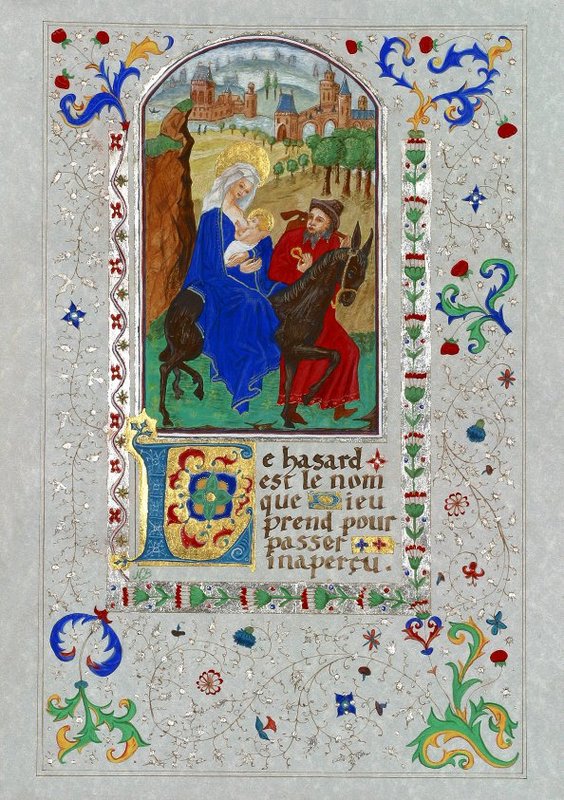 Le hasard
est le nom
que Dieu
prend pour
passer
inaperçu.